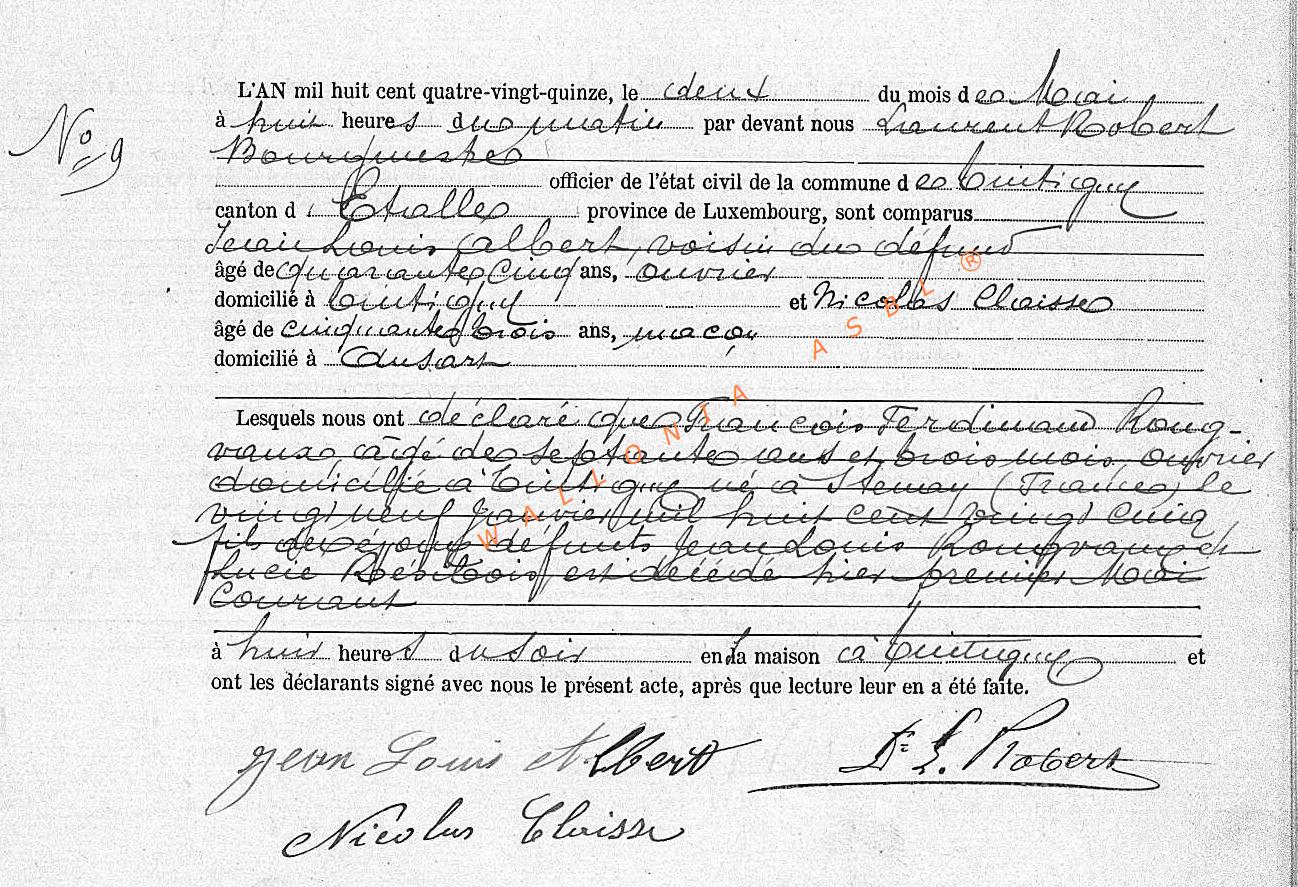 L'AN mil huit cent quatre-vingt-quinze, le deux du mois de Mai
No 9
à huit heures du matin par devant nous Laurent Robert
Bourgmestre
officier de l'état civil de la commune de Tintigny
canton d'Etalle province de Luxembourg, sont comparus
Jean Louis Albert, voisin du défunt
âgé de quarante cinq ans, ouvrier
domicilié à Tintigny et Nicolas Claisse
âgé de cinquante trois ans, maçon
domicilié à Ansart
Lesquels nous ont déclaré que François Ferdinand Rong-
vaux, âgé de septante ans et trois mois, ouvrier
domicilié à Tintigny né à Stenay (France) le
vingt neuf Janvier mil huit cent vingt cinq
fils des époux défunts Jean Louis Rongvaux et
Lucie est décédé hier premier Mai
Courant
à huit heures du soir en la maison à Tintigny et
ont les déclarants signé avec nous le présent acte, après que lecture leur en a été faite.
Jean Louis Albert Dr L. Robert
Nicolas Claisse
WALLONIA ASBL ®